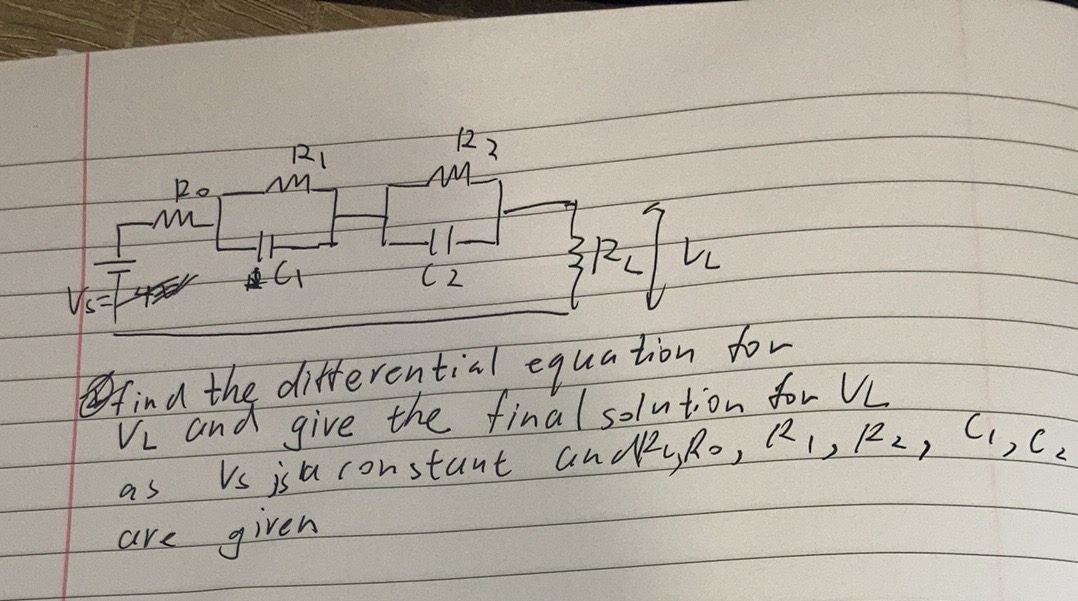 R1
R2
R0
C1
C2
RL
VL
Vs=
find the differential equation for
VL and give the final solution for VL
as Vs is a constant and RL, R0, R1, R2, C1, C2
are given